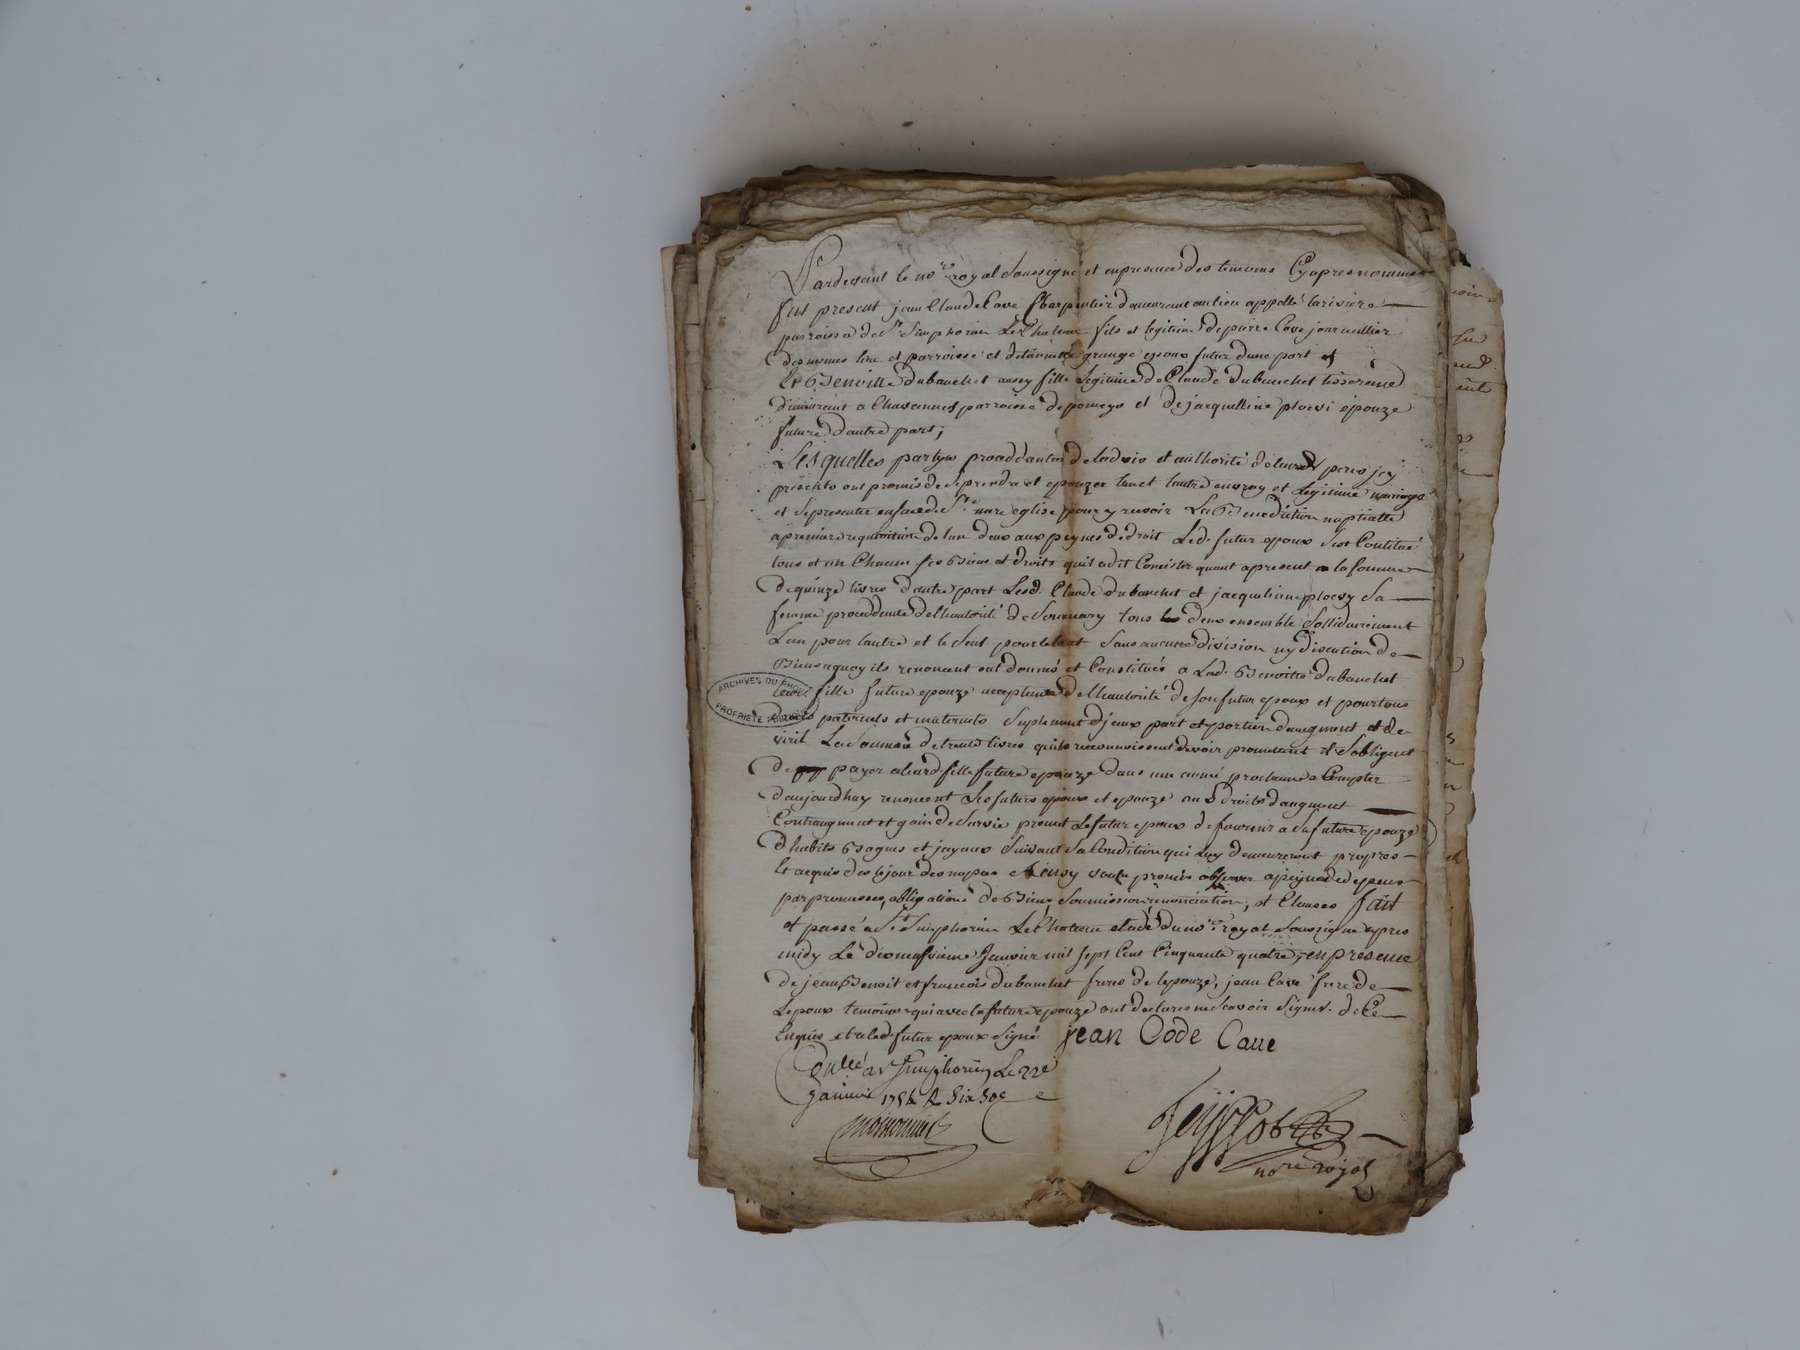 Pardevant le no.re royal Soussigné et en presence des temoins Cy apres nommes
fut present jean Claude Cave Charpentier demeurant au lieu appellé lariviere
parroisse de St Simphorien Le Chateau fils et legitime de pierre Cave journallier
des memes lieu et parroisse et de grange epoux futur dune part et
Et Benoitte dubanchet aussy fille Legitime de Claude dubanchet tisserand
demeurant a Chavannes parroisse de pomeys et de jacquelline ploevi epouze
future dautre part,
Lesquelles partyes procedantes de ladvis et authorité de leurs peres jcy
presents ont promis de se prendre et epouzer lun et lautre en vray et Legitime mariage
et se presenter en face de Ste mere eglise pour y recevoir La Benediction nuptialle
a premiere requisition de lun deux aux peynes de droit Led. futur epoux sest Constitué
tous et un Chacun ses Biens et droits quil a dit Consister quant a present a la somme
de quinze livres dautre part Lesd. Claude dubanchet et jacqueline ploevy Sa
femme procedente de lhautorité de Son mary tous les deux ensemble Sollidairement
Lun pour lautre et le Seul pour le tout Sans aucune division ny discution de
Biens a quoy ils renoncent ont donné et Constitués a Lad. Benoitte dubanchet
leur fille future epouze acceptante de lhautorité de son futur epoux et pour tous
droits paternels et maternels Suplement djceux part et portion daugment et de
viril La Somme de trente livres quils reconnoissent devoir promettent et Sobligent
de payer a leurd. fille future epouze dans une année prochaine a Compter
daujourdhuy renoncent Les futurs epoux et epouze aux droits daugment
Contraugment et gain de Survie promet Le futur epoux de fournir a sa future epouze
dhabits Bagues et joyaux Suivant Sa Condition qui luy demeureront propres
Et acquis des le jour des nopces Ainsy voulu promis observer a peyne de depens
par promesses, obligations de Biens Soumissions, renonciation, et Clauses fait
et passé a St Simphorien Le Chateau etude du no.re royal Soussigné apres
midy Le dix neufvieme Janvier mil sept Cent Cinquante quatre, en presence
de jean Benoit et francois dubanchet freres de lepouze, jean Cave frere de
Lepoux temoins qui avec la future epouze ont declares ne Scavoir Signer. de Ce
Enquis et a led. futur epoux Signé jean Code Caue
Conllé a St Simphorien Le 22e
Janvier 1754 R Six Sols
no.re royal
ARCHIVES DU RHÔNE
PROPRIETE PUBLIQUE